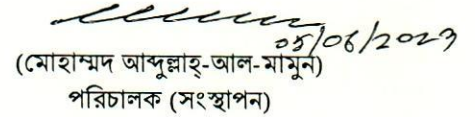 ০৮/০৬/২০২৩
(মোহাম্মদ আব্দুল্লাহ্-আল-মামুন)
পরিচালক (সংস্থাপন)